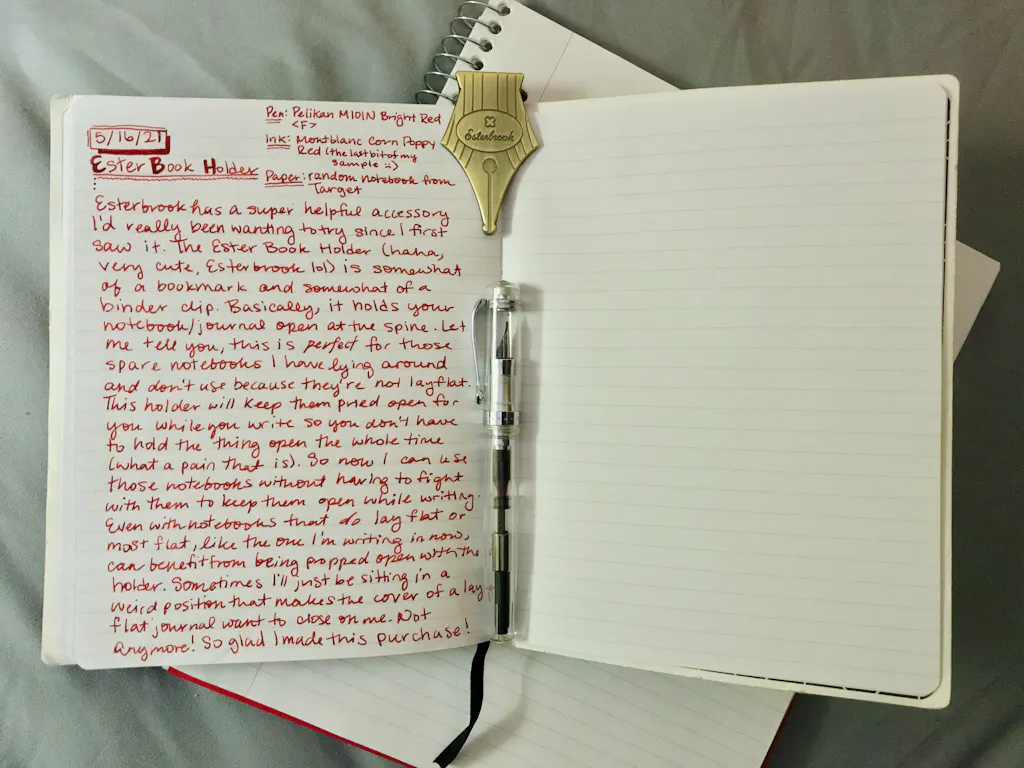 5/16/21
Ester Book Holder
Pen: Pelikan M101N Bright Red
<F>
Ink: Montblanc Corn Poppy
Red (the last bit of my
sample :()
Paper: random notebook from
Target
Esterbrook has a super helpful accessory
I'd really been wanting to try since I first
saw it. The Ester Book Holder (haha,
very cute, Esterbrook lol) is somewhat
of a bookmark and somewhat of a
binder clip. Basically, it holds your
notebook/journal open at the spine. Let
me tell you, this is perfect for those
spare notebooks I have lying around
and don't use because they're not layflat.
This holder will keep them pried open for
you while you write so you don't have
to hold the thing open the whole time
(what a pain that is). So now I can use
those notebooks without having to fight
with them to keep them open while writing.
Even with notebooks that do lay flat or
most flat, like the one I'm writing in now,
can benefit from being propped open with the
holder. Sometimes I'll just be sitting in a
weird position that makes the cover of a lay
flat journal want to close on me. Not
anymore! So glad I made this purchase!
Esterbrook